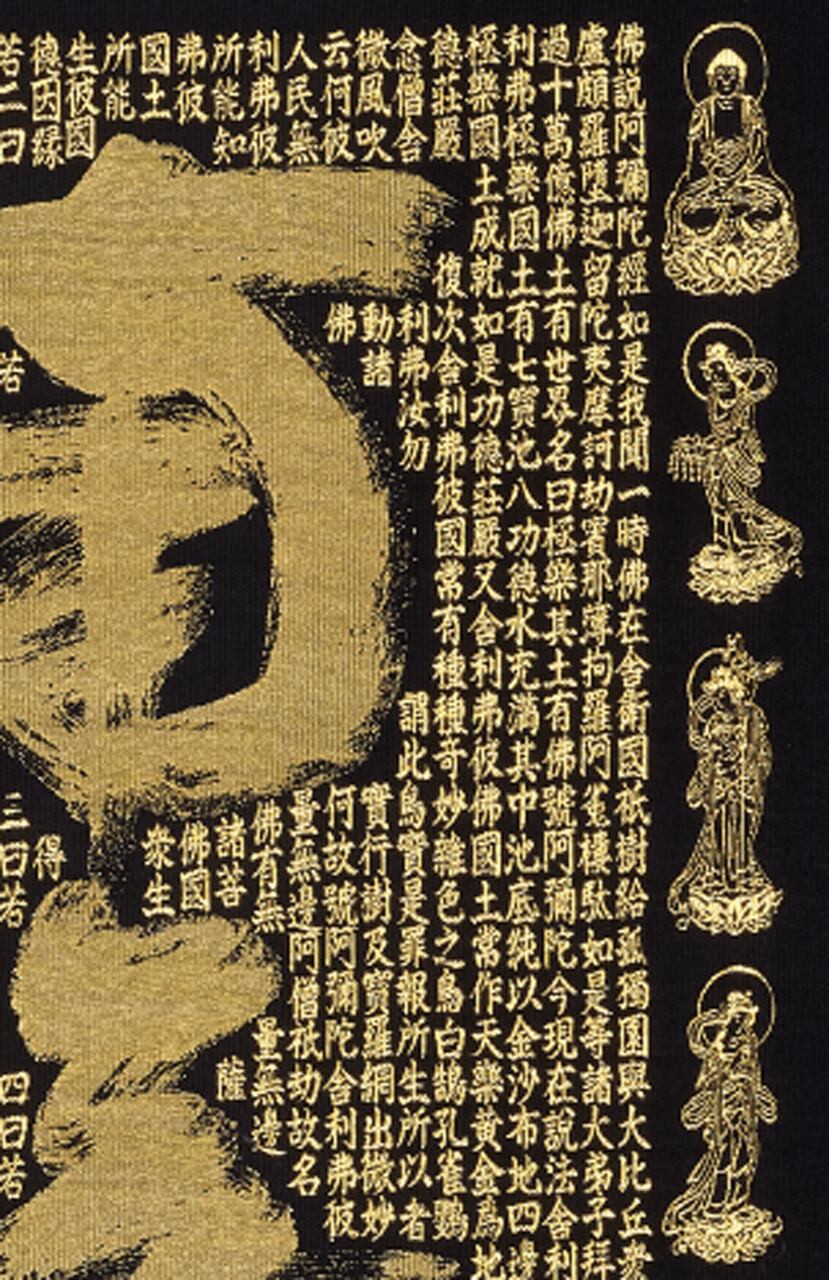 佛說阿彌陀經如是我聞一時佛在舍衛國祇樹給孤獨園與大比丘衆
盧頗羅墮迦留陀夷摩訶劫賓那薄拘羅阿㝹樓馱如是等諸大弟子拜
過十萬億佛土有世界名曰極樂其土有佛號阿彌陀今現在說法舍利
利弗極樂國土有七寶池八功德水充滿其中池底純以金沙布地四邊
極樂國土成就如是功德莊嚴又舍利弗彼佛國土常作天樂黃金爲地
德莊嚴復次舍利弗彼國常有種種奇妙雜色之鳥白鵠孔雀鸚
念僧舍利弗汝勿謂此鳥實是罪報所生所以者
微風吹動諸寶行樹及寶羅網出微妙
云何彼佛何故號阿彌陀舍利弗彼
人民無量無邊阿僧祇劫故名
利弗彼佛有無量無邊
所能知諸菩薩
弗彼佛國
國土衆生
所能
生彼國
德因緣得
若二曰若三曰若四曰若